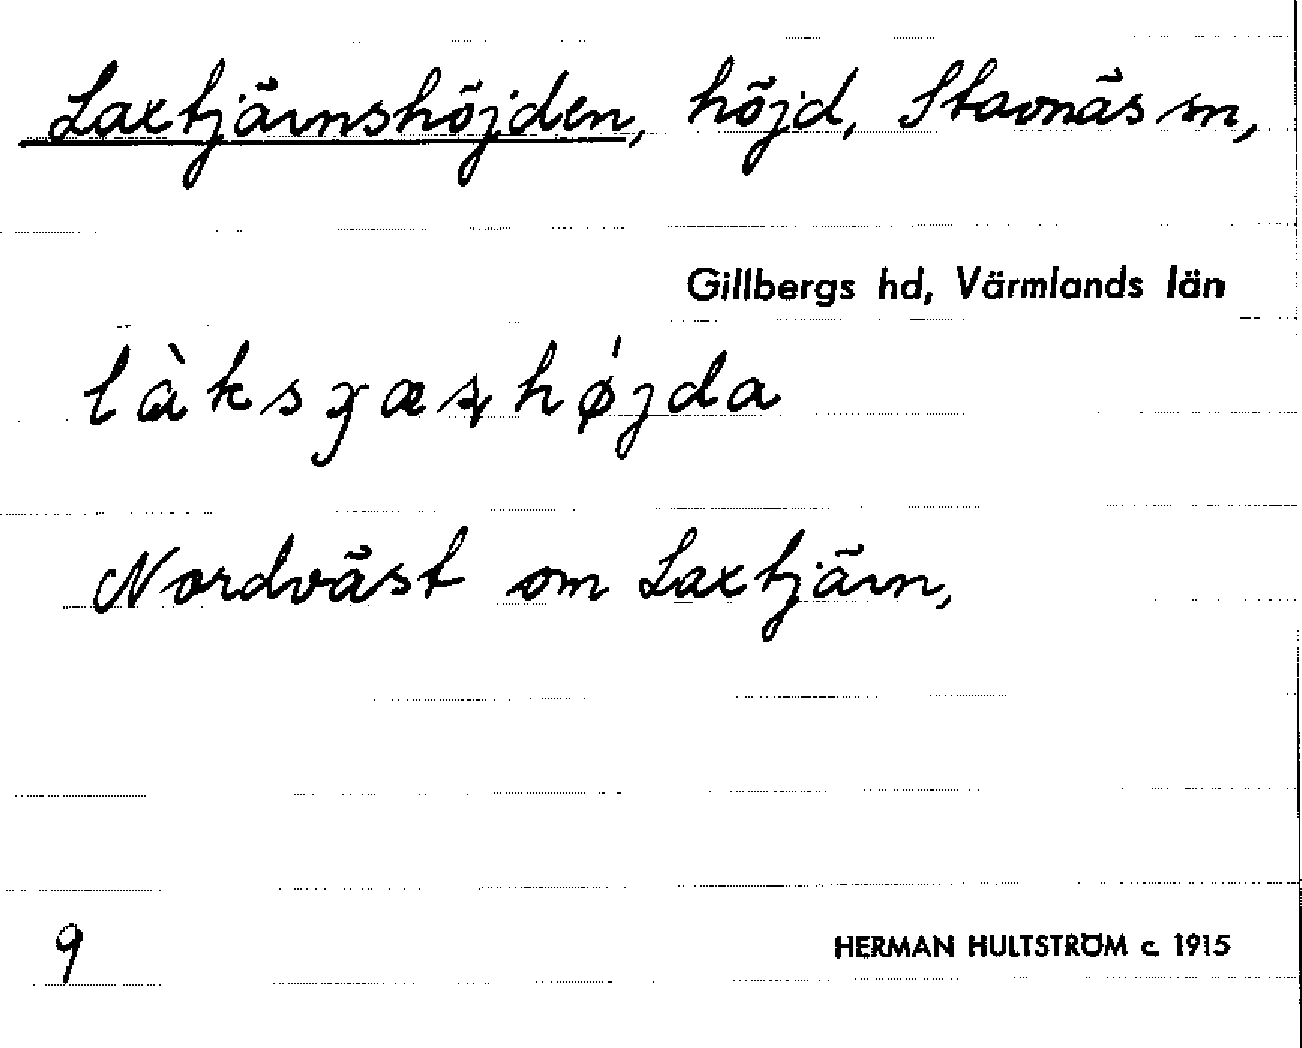 Laxtjärnshöjden, höjd, Stavnäs sn,
Gillbergs hd, Värmlands län
Nordväst om Laxtjärn,
9
HERMAN HULTSTRÖM c. 1915